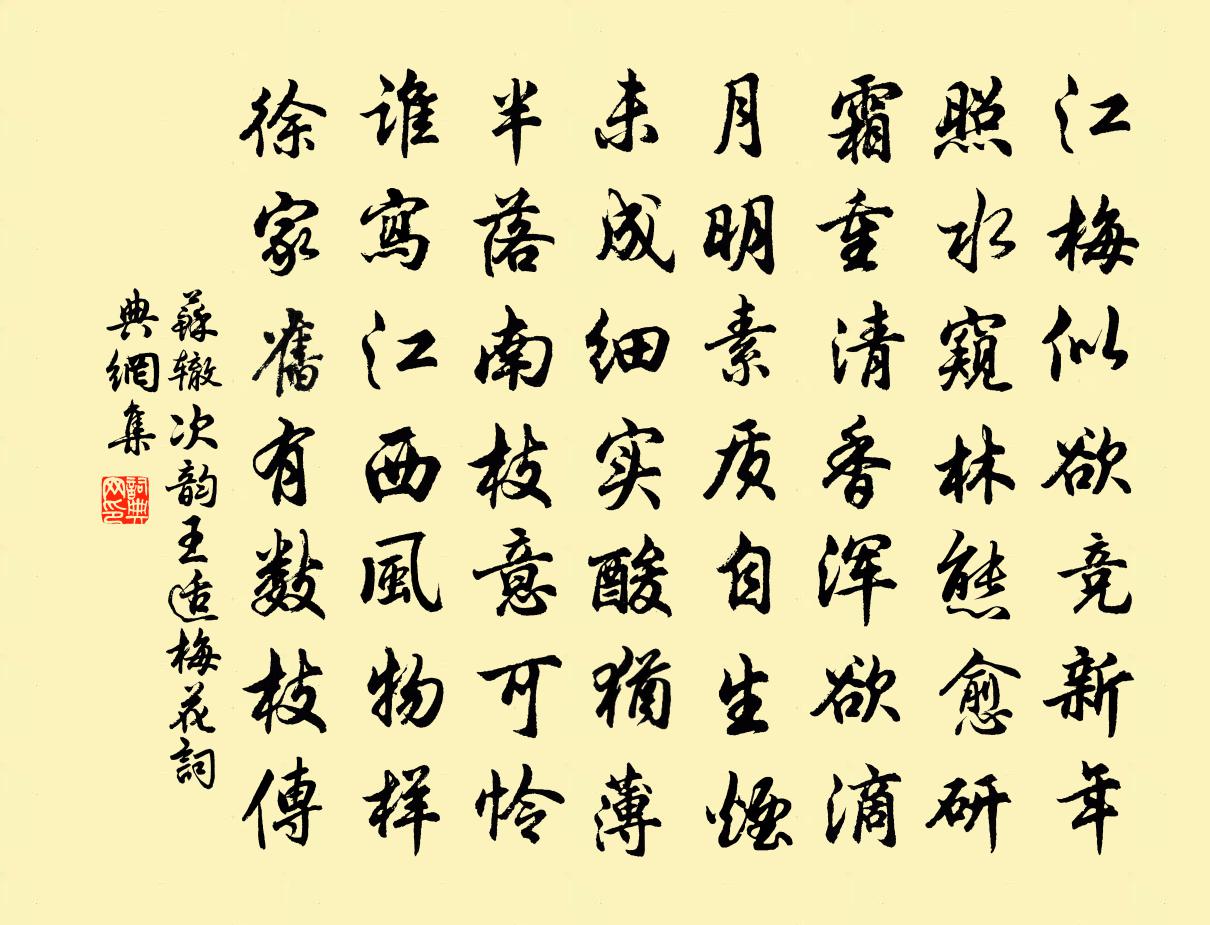 江梅似欲竞新年
照水窥林態愈研
霜重清香浑欲滴
月明素质自生煙
未成细实酸犹薄
半落南枝意可怜
谁寫江西風物样
徐家舊有数枝傳
蘇辙次韵王适梅花詞
典網集
詞典网印